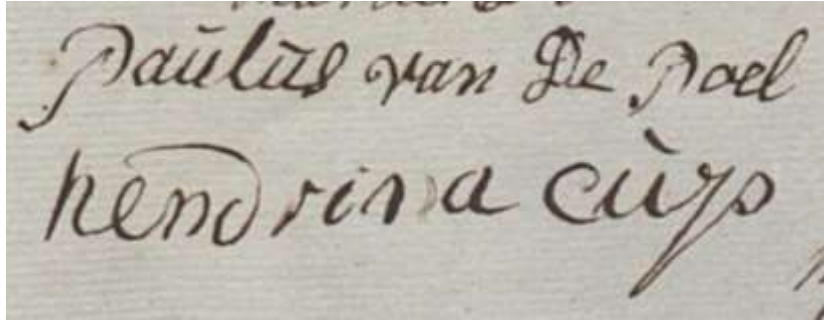 Paulus van De Poel
hendrina cuijp